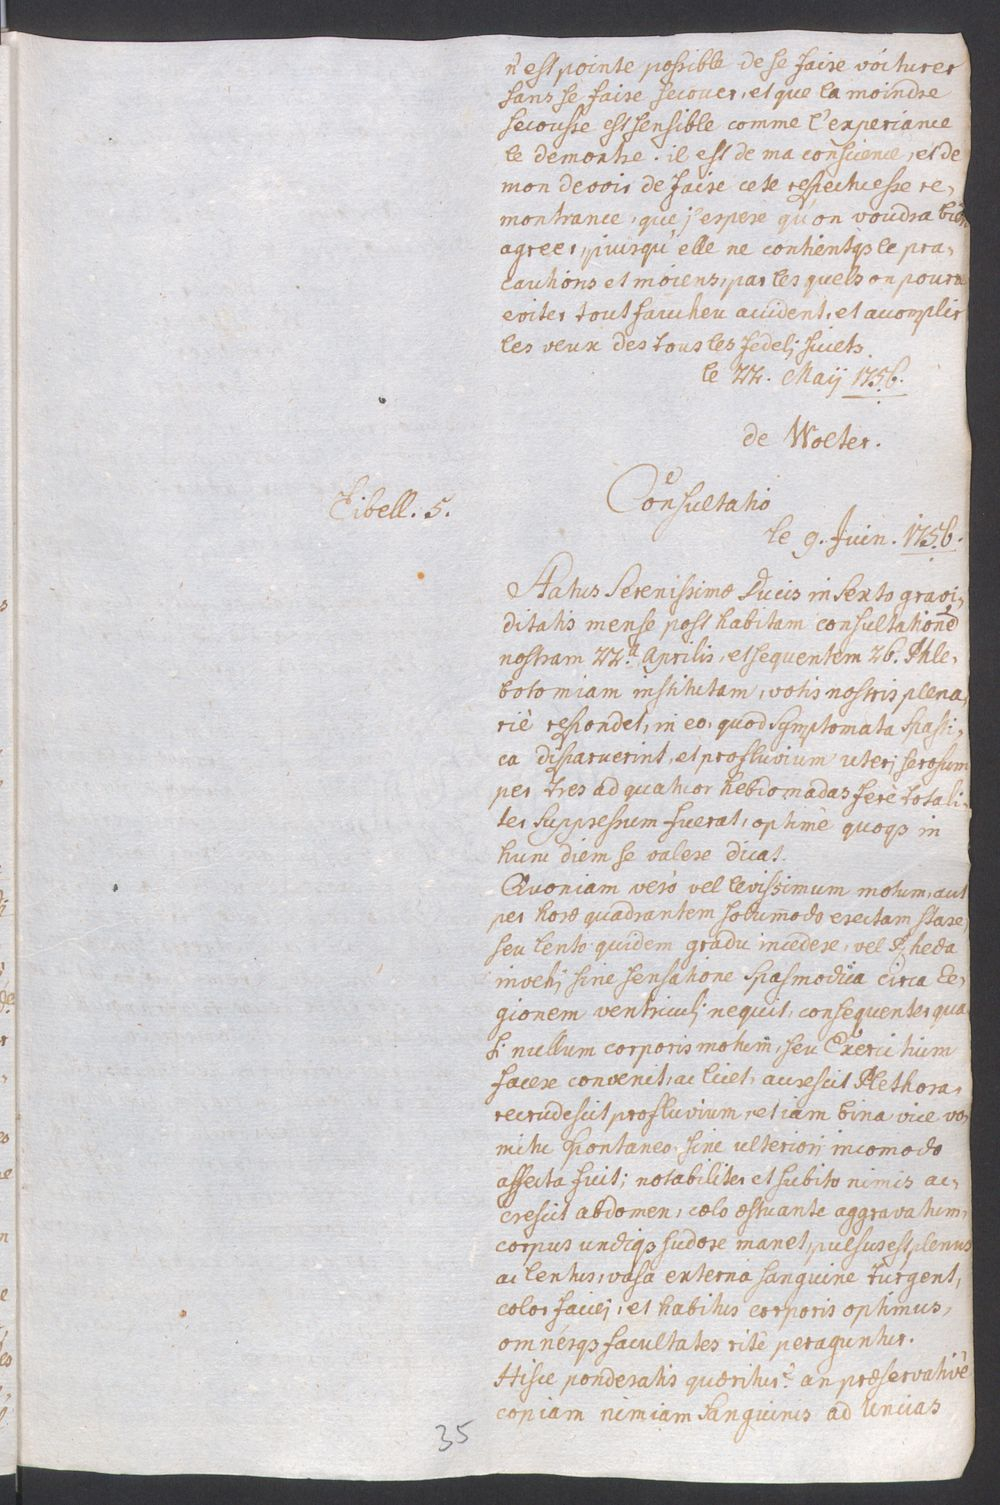 n'est pointe possible de se faire voiturer
sans se faire secouer, et que la moindre
secousse est sensible comme l'experiance
le demontre. il est de ma conscience, et de
mon devoir de faire cete respectuesse re,
montrance, que j'espere qu'on voudra bien
agreer, puisqu'elle ne contient qs le pra,
cautions et moiens, par les quels on poura
eviter tout faucheu accident, et acomplir
les veux des tous les fedelj sujets.
le 22. Maij 1756.
de Wolter.
Libell. 5.
Consultatio
le 9. Juin. 1756.
Status Serenissimæ Ducis in sexto gravi,
ditatis mense post habitam consultationē
nostram 22.ª Aprilis, et sequentem 26. Phle,
botomiam institutam, votis nostris plena,
riè respondet, in eo, quod symptomata spasti,
ca disparuerint, et profluvium uterj serosum
per tres ad quatuor hebdomadas ferè totali,
ter suppressum fuerat, optimè quoqs in
hunc diem se valere dicat.
Quoniam verò vel levissimum motum, aut
per horæ quadrantem solummodo erectam stare,
seu lento quidem gradu incedere, vel Rheda
invehj sine sensatione spasmodica circa re,
gionem ventriculj nequit, consequenter qua,
si nullum corporis motum, seu Exercitium
facere convenit, ac licet, accrescit Plethora,
recrudescit profluvium, et iam bina vice vo,
mitu spontaneo, sine ulteriorj incomodo
affecta fuit; notabiliter et subito nimis ac,
crescit abdomen, cœlo æstuante aggravatum,
corpus undiqs sudore manet, pulsus est plenus
ac lentus, vasa externa sanguine turgent,
color faciej, et habitus corporis optimus,
omnésqs facultates ritè peraguntur.
Hisce ponderatis quæritur? an præservativè
copiam nimiam sanguinis ad uncias
35